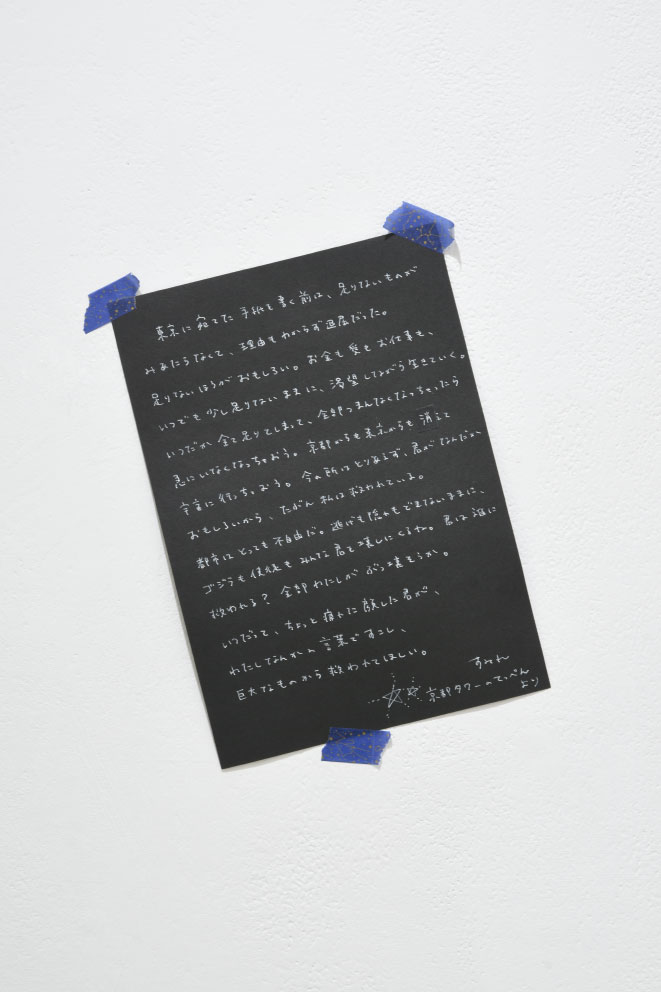 東京に宛てた手紙を書く前は、足りないものが
みあたらなくて、理由もわからず退屈だった。
足りないほうがおもしろい。お金も愛もお仕事も、
いつでも少し足りないままに、渇望しながら生きていく。
いつだか全て足りてしまって、全部つまんなくなっちゃったら
急にいなくなっちゃおう。京都からも東京からも消えて
宇宙に行っちゃおう。今の所はとりあえず、君がなんだか
おもしろいから、たぶん私は救われている。
都市はとっても不自由だ。逃げも隠れもできないままに、
ゴジラも使徒もみんな君を壊しにくるね。君は誰に
救われる？全部わたしがぶっ壊そうか。
いつだって、ちょっと疲れた顔した君が、
わたしなんかの言葉ですこし、
巨大なものから救われてほしい。
すみれ
京都タワーのてっぺん
より